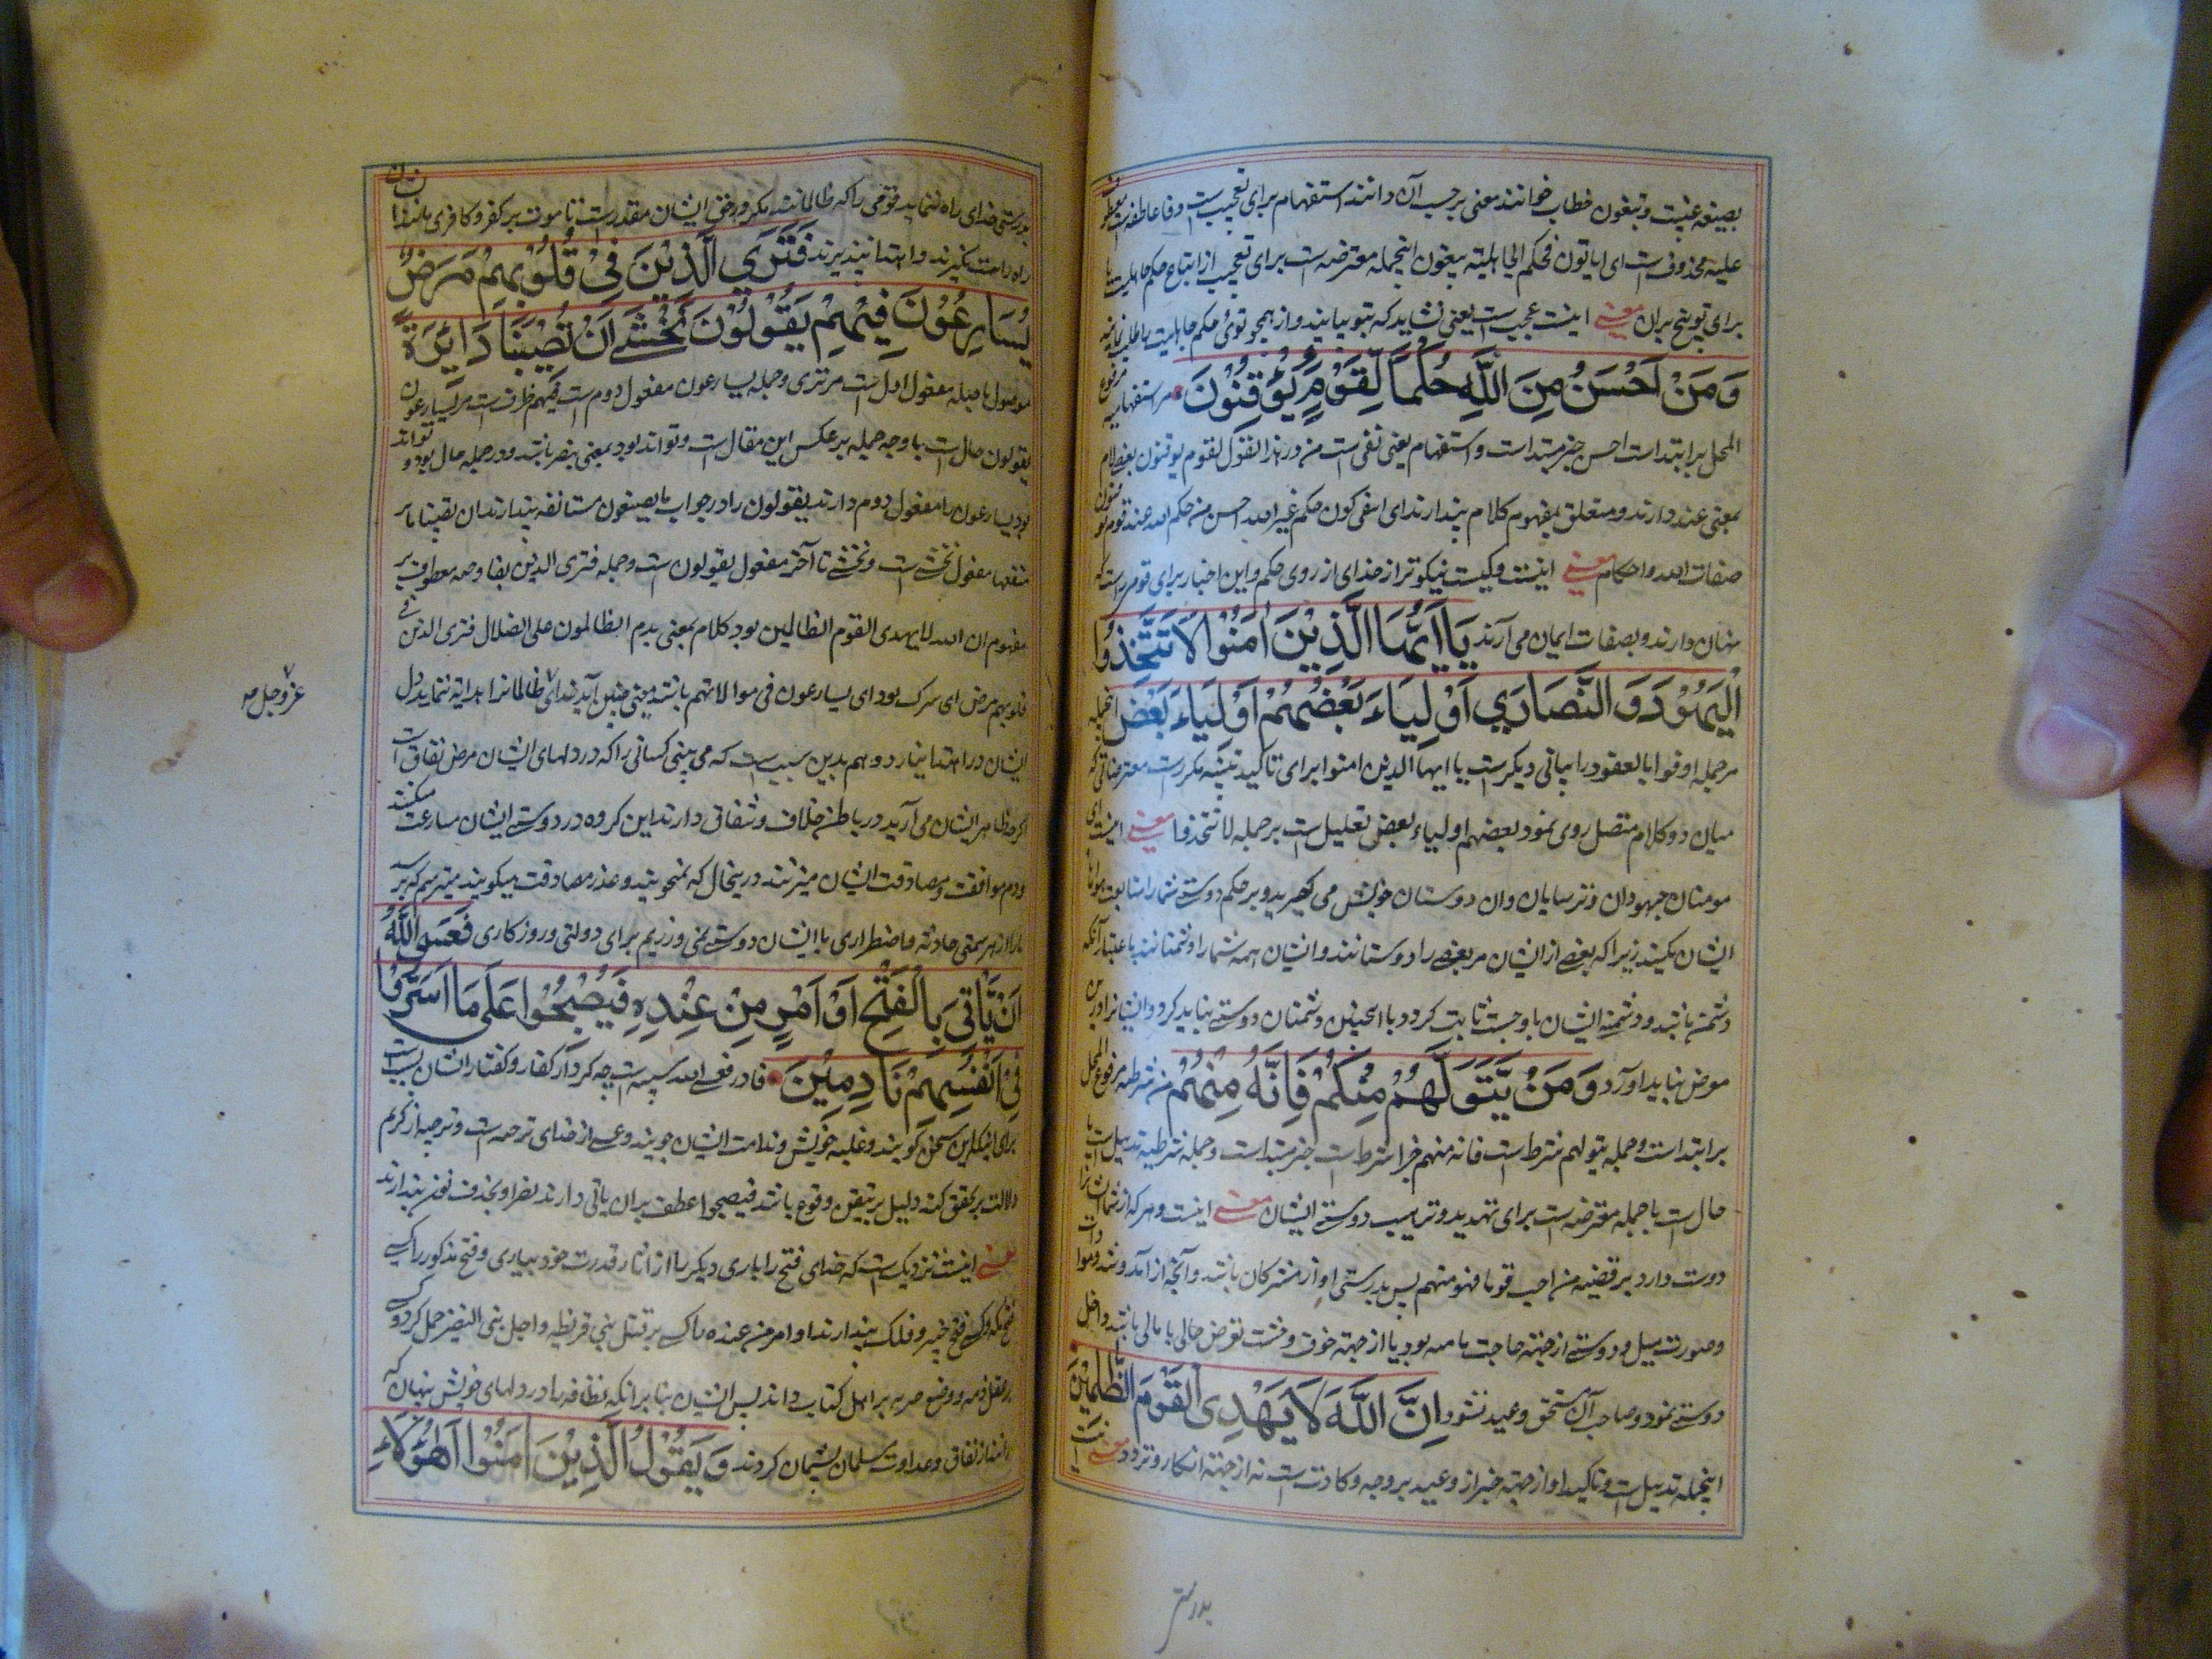 بصیغه غیبت و تبغون خطاب خوانند معنی برحسب آن دانند استفهام برای تعجیب است و فا عاطفه است
علیه محذوف است ای ایاتون فحکم الجاهلیته یبغون اینجمله معترضه است برای تعجیب از اتباع حکم جاهلیت یا
برای توبیخ بران معنی اینست عجب است یعنی نشاید که بتو بیایند و از همچو توئی حکم جاهلیت را طلب نمایند
وَمَنْ اَحْسَنُ مِنَ اللَّهِ حُكْمًا لِّقَوْمٍ يُّوْقِنُوْنَ من استفهامیه مرفوع
المحل بر ابتداست احسن خبر مبتداست و استفهام یعنی نفی است من در هذا القول لقوم یوقنون بعضی لام
بمعنی عند دارند و متعلق بمفهوم کلام پندارند ای انتفی کون حکم غیر الله احسن من حکم الله عند قوم یوقنون
صفات الله و احکامه معنی اینست و کیست نیکوتر از خدای از روی حکم و این اخبار برای قومی راست که
دارند و بصفات ایمان می آرند يَا اَيُّهَا الَّذِيْنَ اٰمَنُوْا لَا تَتَّخِذُوا
الْيَهُوْدَ وَ النَّصَارَي اَوْلِيَاءَ بَعْضُهُمْ اَوْلِيَاءُ بَعْضٍ اینجمله
مر جمله اوفوا بالعقود را بیانی دیگر است یا ایها الذین امنوا برای تاکید تنبیه مکرر است معترضاتی که
میان دو کلام متصل روی نمود بعضهم اولیاء بعض تعلیل است بر جمله لا تتخذوا معنی اینست ای
مومنان جهودان و ترسایان را دوستان خویش می گیرید و بر حکم دوستی شمار متابعت
ایشان مکنید زیرا که بعضی از ایشان مر بعضی را دوستانند و ایشان همه شما را دشمنانند باعتبار آنکه
دشمن باشند و دشمنی ایشان باوجست ثابت گردد با اینچنین دشمنان دوستی نباید کرد و ایشانرا درین
موض نباید آورد وَ مَنْ يَّتَوَلَّهُمْ مِنْكُمْ فَاِنَّهٗ مِنْهُمْ من شرطیه مرفوع المحل
بر ابتداست و جمله یتولهم شرط است فانه منهم جزا شرط است خبر مبتداست و جمله شرطیه تذییل است یا
حال است یا جمله معترضه است برای تهدید و ترهیب دوستی ایشان معنی اینست و هر که از شما ایشانرا
دوست دارد بر قضیه من احب قوما فهو منهم پس بدرستی او از مشرکان باشد و آنچه از آمد و شد
و صورت میل و دوستی از جهته حاجت یا بمه بود یا از جهته خوف و خشت تعرض حالی یا مالی باشد داخل
دوستی نبود و صاحب آن مستحق وعید نشود اِنَّ اللَّهَ لَا يَهْدِی الْقَوْمَ الظّٰلِمِيْنَ
اینجمله تذییل است و تاکید او از جهته خبر از وعید بر وجه وکادت است نه از جهته انکار و تردد معنی اینست
بدرستی
بدرستی خدای راه ننماید قومی را که ظالمانند مگر در حق ایشان مقدر است تا موت بر کفر و کافری بمانند
راه راست نگیرند و اهتدا نپذیرند فَتَرَي الَّذِيْنَ فِیْ قُلُوْبِهِمْ مَرَضٌ
يُسَارِعُوْنَ فِيْهِمْ يَقُوْلُوْنَ نَخْشٰے اَنْ تُصِيْبَنَا دَائِرَةٌ
موصول با صله مفعول اول است مر تری و جمله یسارعون مفعول دوم است فیهم ظرف است مر یسارعون
یقولون حال است یا وجه جمله بر عکس این مقال است و تواند بود بمعنی بصر باشد و در جمله حال بود و تواند
بود یسارعون را مفعول دوم دارند یقولون را در جواب ما یصنعون مستانفه پندارند ان تصیبنا
مفعول نخشی است و نخشی تا آخر مفعول یقولون است و جمله فتری الذین بفا وصله معطوف بر
مفهوم ان الله لا یهدی القوم الظالمین بود کلام بمعنی یدم الظالمون علی الضلال فتری الذین فی
قلوبهم مرض ای شرک بود ای یسارعون فی موالاتهم باشد معنی چنین آید خدای ظالمانرا هدایة ننماید دل
عز و جل
ایشان در اهتدا نیارد و هم بدین سبب است که می بینی کسانی را که در دلهای ایشان مرض نفاق است
اگرچه ظاهر ایشان می آرید در باطن خلاف و شقاقی دارند این گروه در دوستی ایشان مسارعت میکنند
و دم موافقت و مصادقت ایشان میزنند در ینحال که نمیجویند و عذر مصادقت میگویند میترسم که بر
ما از هر سمتی حادثه و اضطراری با ایشان دوستی می ورزیم برای دولتی و روزگاری فَعَسَی اللّٰهُ
اَنْ يَّاْتِیَ بِالْفَتْحِ اَوْ اَمْرٍ مِنْ عِنْدِهٖ فَيُصْبِحُوْا عَلَی مَا اَسَرُّوْا
فِیْ اَنْفُسِهِمْ نَادِمِيْنَ فا در فعسی الله سببیه است چه کردار کفار و گفتار ایشان سبب است
برای اینکه این سخن گویند و غلبه خویش و ندامت ایشان جویند و عسی از خدای ترجیه است و ترجیه از کریم
دلالت بر تحقق کند و دلیل بر تیقن وقوع باشد فیصبحوا عطف بر ان یاتی دارند
معنی اینست نزدیک است که خدای فتح را یا کاری دیگر را از آثار قدرت خود بیاری و فتح مذکور را کسی
فتح مکه و کسی فتح خیبر و فدک پندارند او امر من عنده را کسی بر قتل بنی قریظه و اجلاء بنی النضیر حمل کردند
و وضع جزیه بر اهل کتاب دانند پس ایشان بنا بر آنکه را در دلهای خویش پنهان که
از نفاق و عداوت مسلمان پشیمان گردند وَ يَقُوْلُ الَّذِيْنَ اٰمَنُوْا اَهٰؤُلَاءِ